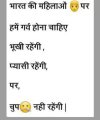 भारत की महिलाओं 👩 पर
हमें गर्व होना चाहिए
भूखी रहेंगी ,
प्यासी रहेंगी,
पर,
चुप🤫 नही रहेंगी |